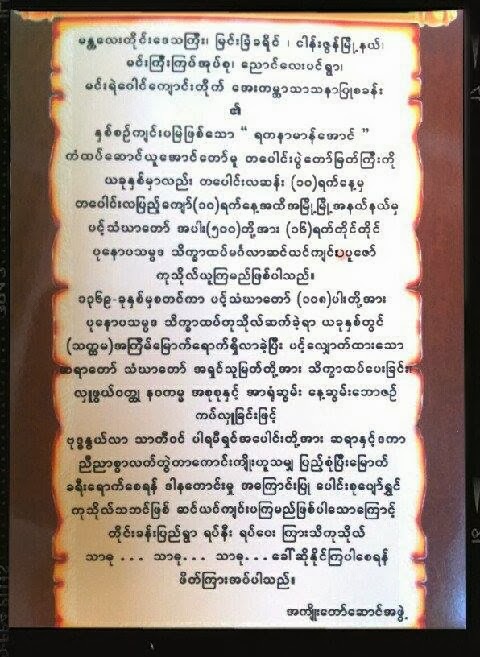 မန္တလေးတိုင်းဒေသကြီး၊ မြင်းခြံခရိုင် ၊ ငါန်းဇွန်မြို့နယ်၊
မင်းကြီးကြပ်အုပ်စု၊ ညောင်လေးပင်ရွာ၊
မင်းရဲပေါင်ကျောင်းတိုက် အေးကမ္ဘာသာသနာပြုစခန်း
၏
နှစ်စဉ်ကျင်းပမြဲဖြစ်သော “ ရတနာမာန်အောင် ”
ကံထပ်ဆောင်ယူအောင်တော်မူ တပေါင်းပွဲတော်မြတ်ကြီးကို
ယခုနှစ်မှာလည်း တပေါင်းလဆန်း (၁၀)ရက်နေ့မှ
တပေါင်းလပြည့်ကျော်(၁၀)ရက်နေ့အထိအမြို့မြို့အနယ်နယ်မှ
ပင့်သံဃာတော် အပါး(၅၀၀)တို့အား (၁၆)ရက်တိုင်တိုင်
ပုနောပသမ္ပဒ သိက္ခာထပ်မင်္ဂလာဆင်ထင်ကျင်းပပူဇော်
ကုသိုလ်ယူကြမည်ဖြစ်ပါသည်။
၁၃၆၉-ခုနှစ်မှစတင်ကာ ပင့်သံဃာတော် (၁၀၈)ပါးတို့အား
ပုနောပသမ္ပဒ သိက္ခာထပ်ကုသိုလ်ဆက်ခဲ့ရာ ယခုနှစ်တွင်
(သတ္တမ)အကြိမ်မြောက်ရောက်ရှိလာခဲ့ပြီး ပင့်လျှောက်ထားသော
ဆရာတော် သံဃာတော် အရှင်သူမြတ်တို့အား သိက္ခာထပ်ပေးခြင်း၊
လှူဖွယ်ဝတ္ထု နဝကမ္မ အစုစုနှင့် အာရုံဆွမ်း နေ့ဆွမ်းဘောဇဉ်
ကပ်လှူခြင်းဖြင့်
ဗုဒ္ဓနွယ်လာ သာကီဝင် ပါရမီရှင်အပေါင်းတို့အား ဆရာနှင့်ဒကာ
ညီညာစွာလက်တွဲကာကောင်းကျိုးယူသမျှ ပြည့်စုံပြီးမြောက်
ခရီးရောက်စေရန် ဒါနကောင်းမှု အကြောင်းပြု ပေါင်းစုပျော်ရွှင်
ကုသိုလ်သဘင်ဖြစ် ဆင်ယင်ကျင်းပကြမည်ဖြစ်ပါသောကြောင့်
တိုင်းခန်းပြည်ရွာ ရပ်နီး ရပ်ဝေး ကြားသိကုသိုလ်
သာဓု ... သာဓု ... သာဓု... ခေါ်ဆိုနိုင်ကြပါစေရန်
ဖိတ်ကြားအပ်ပါသည်။
အကျိုးတော်ဆောင်အဖွဲ့